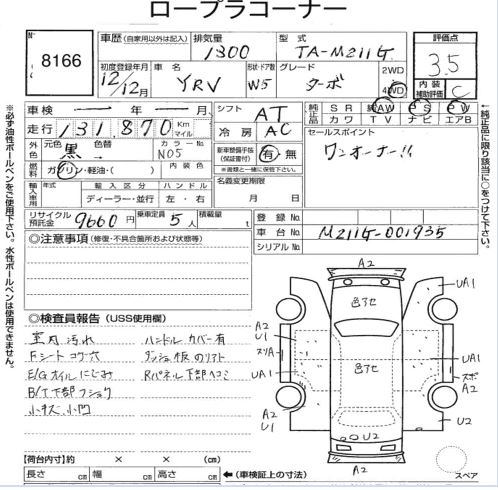 ロープラコーナー
8166
車歴 (自家用以外は記入)
排気量
1300
型式
TA-M211G
評価点
3.5
初度登録年月
12/12月
車名
YRV
形状・ドア数
W5
グレード
ターボ
2WD
4WD
内装補助評価
C
車検 ー 年 ー 月
走行 131,870 Km マイル
シフト AT
冷房 AC
純正品
SR 純AW PS PW
カワ TV ナビ エアB
外色
元色 黒
色替
カラーNo
N05
新車整備手帳(保証書付) 有・無
※書類と一緒に保管して下さい。
セールスポイント
ワンオーナー!!
燃料
ガソリン・軽油・( )
内装色
輸入車用
年式
輸入区分
ディーラー・並行
ハンドル
左・右
名義変更期限
月 日
リサイクル預託金 9660円
乗車定員 5人
積載量 t
登録No.
車台No. M211G-001935
シリアルNo.
◎注意事項 (修復・不具合箇所および状態等)
◎検査員報告 (USS使用欄)
室内汚れ ハンドルカバー有
Fシートコゲ穴 ダッシュ板のリフト
E/Gオイルにじみ Rパネル下部ヘコミ
B/T下部フショク
小キズ 小凹
A2
色アセ
UA1
A2
U1
スリA
UA1
色アセ
UA1
A2
スポA
A2
U1
U2
U2
A2
【荷台内寸】約 × × (cm)
長さ cm 幅 cm 高さ cm ←(車検証上の寸法)
スペア
※必ず油性ボールペンをご使用下さい。水性ボールペンは使用できません。
※純正品に限り該当に○をつけて下さい。